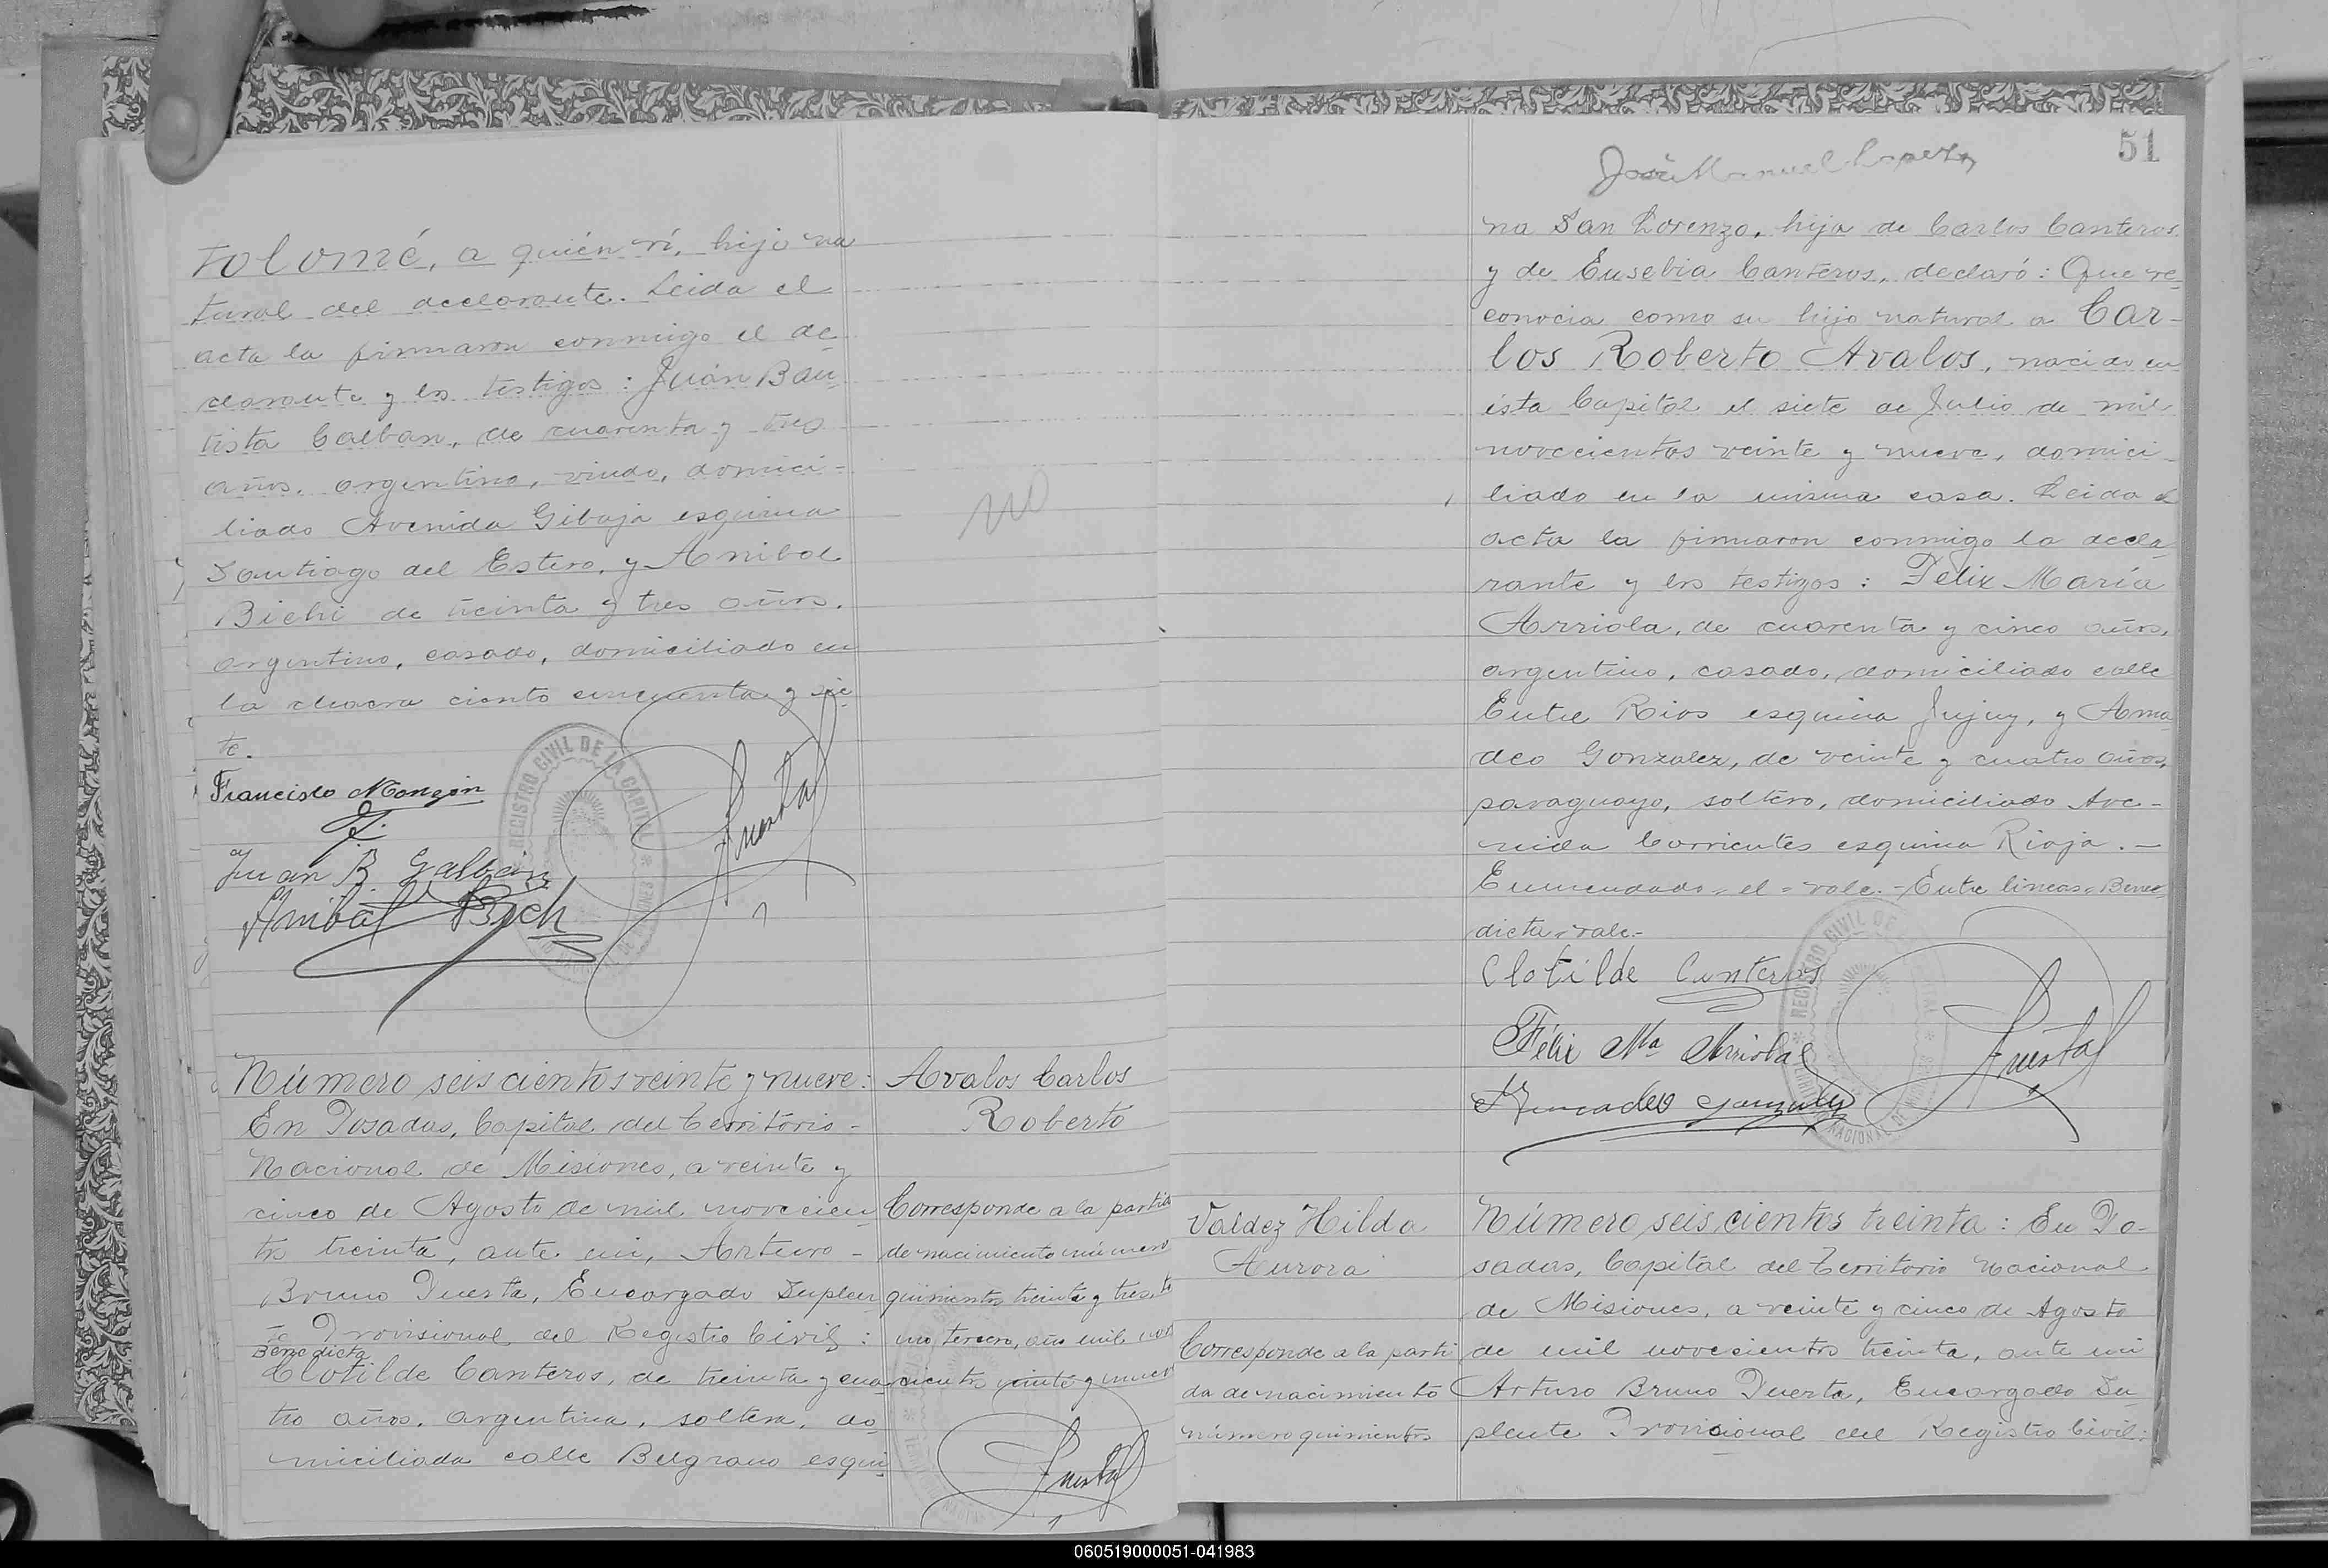 tolomé, a quién ví, hijo na
tural del declarante. Leida el
acta la firmaron conmigo el de
clarante y los testigos: Juán Bau
tista Galban, de cuarenta y tres
años, argentino, viudo, domici-
liado Avenida Gibaja esquina
Santiago del Estero, y Anibal
Bichi de treinta y tres años,
argentino, casado, domiciliado en
la chacra ciento cincuenta y sie-
te.
no
Francisco Monzón
Juan B. Galban
Anibal Bich
Puerta
REGISTRO CIVIL DE LA CAPITAL
Número seiscientos veinte y nueve:
En Posadas, Capital del Territorio-
Nacional de Misiones, a veinte y
cinco de Agosto de mil novecien
tos treinta, ante mi, Arturo-
Bruno Puerta, Encargado Suplen
te Provisional del Registro Civil:
Benedicta
Clotilde Canteros, de treinta y cua
tro años, argentina, soltera, do
miciliada calle Belgrano esqui
Avalos Carlos
Roberto
Corresponde a la partida
de nacimiento número
quinientos treinta y tres, to
mo tercero, año mil nov
ecientos veinte y nueve
Puerta
51
José Manuel Lopez
na San Lorenzo, hija de Carlos Canteros
y de Eusebia Canteros, declaró: Que re-
conocia como su hijo natural a Car-
los Roberto Avalos, nacido en
ésta Capital el siete de Julio de mil
novecientos veinte y nueve, domici-
liado en la misma casa. Leida el
acta la firmaron conmigo la decla-
rante y los testigos: Felix María
Arriola, de cuarenta y cinco años,
argentino, casado, domiciliado calle
Entre Rios esquina Jujuy, y Ama
deo Gonzalez, de veinte y cuatro años,
paraguayo, soltero, domiciliado Ave-
nida Corrientes esquina Rioja.-
Enmendado=el=vale.-Entre lineas=Bene
dicta=vale.-
Clotilde Canteros
Félix Ma Arriola
Amadeo Gonzalez
Puerta
REGISTRO CIVIL DE
Valdez Hilda
Aurora
Corresponde a la parti
da de nacimiento
número quinientos
Número seiscientos treinta: En Po-
sadas, Capital del Territorio Nacional
de Misiones, a veinte y cinco de Agosto
de mil novecientos treinta, ante mi
Arturo Bruno Puerta, Encargado Su
plente Provisional del Registro Civil:
060519000051-041983